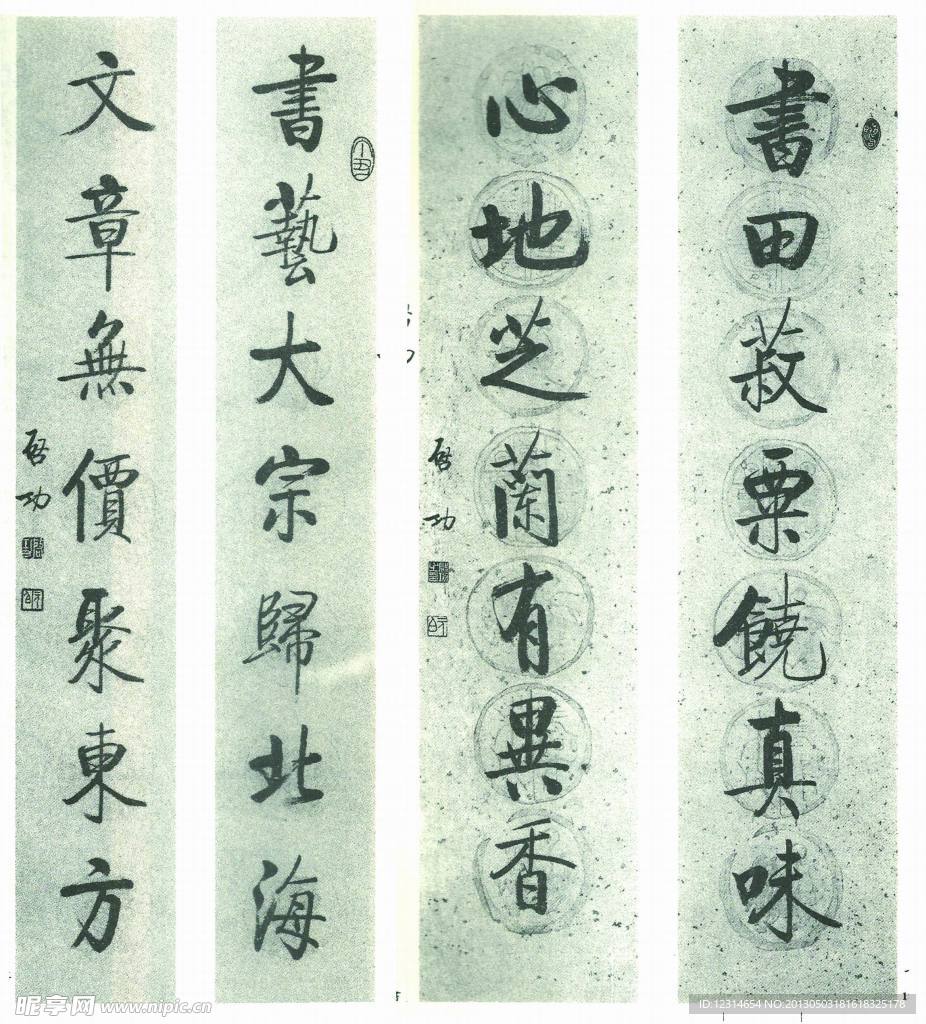 書田菽粟饒真味
心地芝蘭有異香
启功
書藝大宗歸北海
文章無價聚東方
启功
昵享网 www.nipic.cn
ID:12314654 NO:20130503181618325178
1